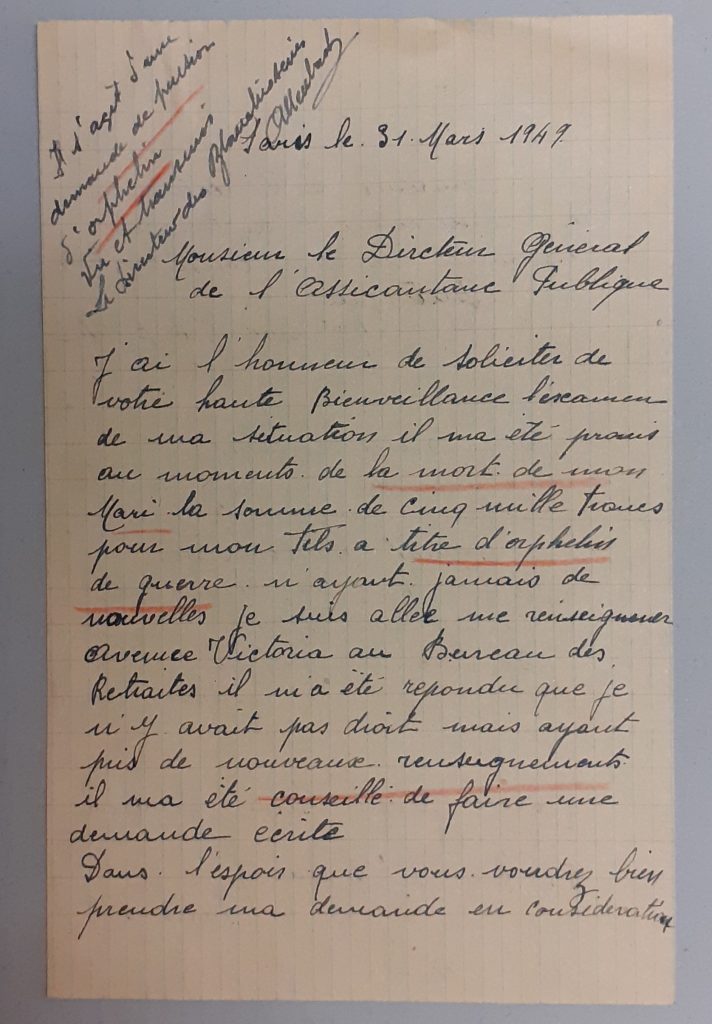 Il s'agit d'une
demande de pension
d'orphelin
Vu et transmis
Le Directeur des Blanchisseries
Paris le 31. Mars 1949
Monsieur le Directeur Général
de l'Assicantanc Publique
J'ai l'honneur de soliciter de
votre haute Bienveillance l'examen
de ma situation il ma été promis
au moments de la mort de mon
Mari la somme de cinq mille Francs
pour mon Fils a titre d'orphelin
de guerre n'ayant jamais de
nouvelles je suis allee me renseigner
Avenue Victoria au Bureau des
Retraites il m'a été repondu que je
n'y avait pas droit mais ayant
pris de nouveaux renseignements
il ma été conseillé de faire une
demande écrite
Dans l'espoir que vous voudrez bien
prendre ma demande en consideration